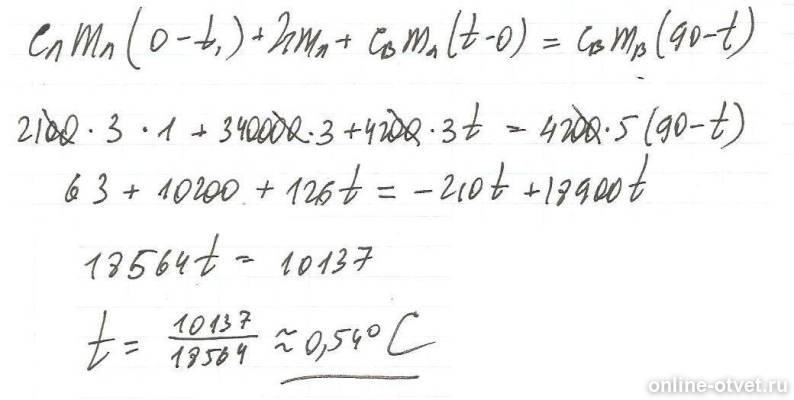 cлmл(0-t₁)+λmл+cвmл(t-0)=cвmв(90-t)
2100·3·1+340000·3+4200·3t=4200·5(90-t)
63+10200+126t=-210t+18900t
18564t=10137
t=10137/18564≈0,54°C
online-otvet.ru